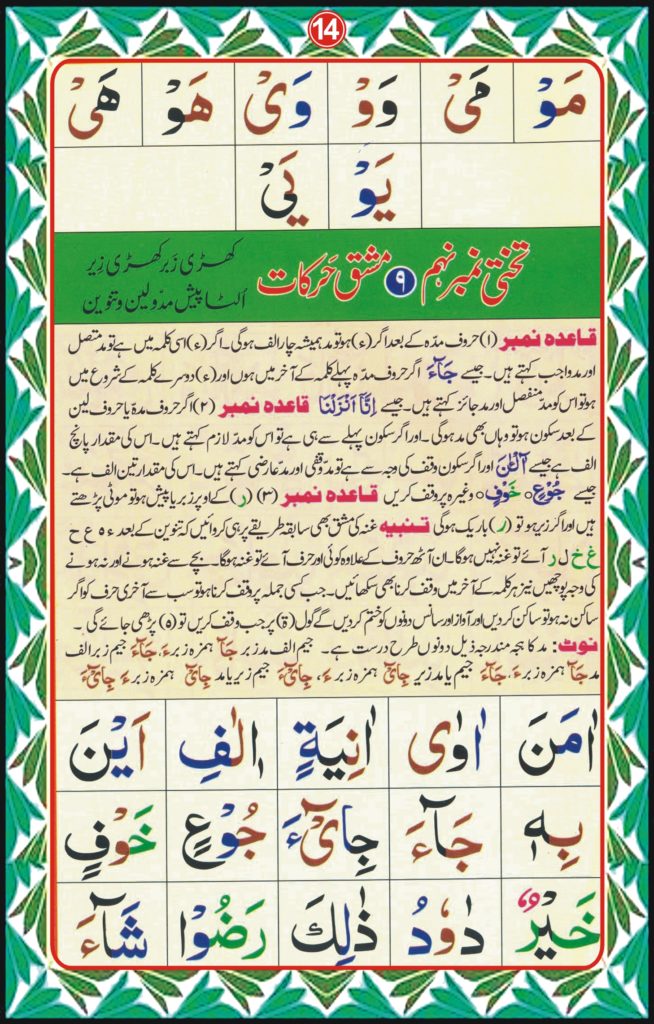 14
مَوْ مَیْ وَوْ وَیْ هَوْ هَیْ
یَوْ یَیْ
تختی نمبر نہم ۹ مشق حرکات کھڑی زَبر کھڑی زِیر
اُلٹا پیش مدّ ولین و تنوین
قاعدہ نمبر (۱) حروف مدّہ کے بعد اگر (ء) ہو تو مد ہمیشہ چار الف ہوگی۔ اگر (ء) اسی کلمہ میں ہے تو مد متصل
اور مد واجب کہتے ہیں۔ جیسے جَآءَ اگر حروف مدّہ پہلے کلمہ کے آخر میں ہوں اور (ء) دوسرے کلمہ کے شروع میں
ہو تو اس کو مد منفصل اور مد جائز کہتے ہیں۔ جیسے اِنَّآ اَنْزَلْنَا قاعدہ نمبر (۲) اگر حروف مدہ یا حروف لین
کے بعد سکون ہو تو وہاں بھی مد ہوگی۔ اور اگر سکون پہلے سے ہی ہے تو اس کو مدّ لازم کہتے ہیں۔ اس کی مقدار پانچ
الف ہے جیسے آلْـٰٔنَ اور اگر سکون وقف کی وجہ سے ہے تو مد وقفی اور مد عارضی کہتے ہیں۔ اس کی مقدار تین الف ہے۔
جیسے جُوْعٍ ○ خَوْفٍ ○ وغیرہ پر وقف کریں قاعدہ نمبر (۳) (ر) کے اوپر زبر یا پیش ہو تو موٹی پڑھتے
ہیں اور اگر زیر ہو تو (ر) باریک ہوگی تنبیہ غنہ کی مشق بھی سابقہ طریقے پر ہی کروائیں کہ تنوین کے بعد ء ہ ع ح
غ خ ل ر آئے تو غنہ نہیں ہوگا۔ ان آٹھ حروف کے علاوہ کوئی اور حرف آئے تو غنہ ہوگا۔ بچے سے غنہ ہونے اور نہ ہونے
کی وجہ پوچھیں نیز ہر کلمہ کے آخر میں وقف کرنا بھی سکھائیں۔ جب کسی جملہ پر وقف کرنا ہو تو سب سے آخری حرف کو اگر
ساکن نہ ہو تو ساکن کر دیں اور آواز اور سانس دونوں کو ختم کر دیں گے گول (ۃ) پر جب وقف کریں تو (ہ) پڑھی جائے گی۔
نوٹ: مد کا ہجہ مندرجہ ذیل دونوں طرح درست ہے۔ جیم الف مد زبر جَآ ہمزہ زبر ءَ، جَآءَ جیم زبر الف
مد جَآ ہمزہ زبر ءَ، جَآءَ جیم یا مد زیر جِایْٓ ہمزہ زبر ءَ، جِایْٓءَ جیم زیر یا مد جِایْٓ ہمزہ زبر ءَ جِایْٓءَ
اٰمَنَ اٰوٰی اٰنِیَةٍ اٖلٰفِ اَیْنَ
بِهٖ جَآءَ جِایْٓءَ جُوْعٍ خَوْفٍ
خَیْرٌ دَاوٗدُ ذٰلِكَ رَضُوْا شَآءَ